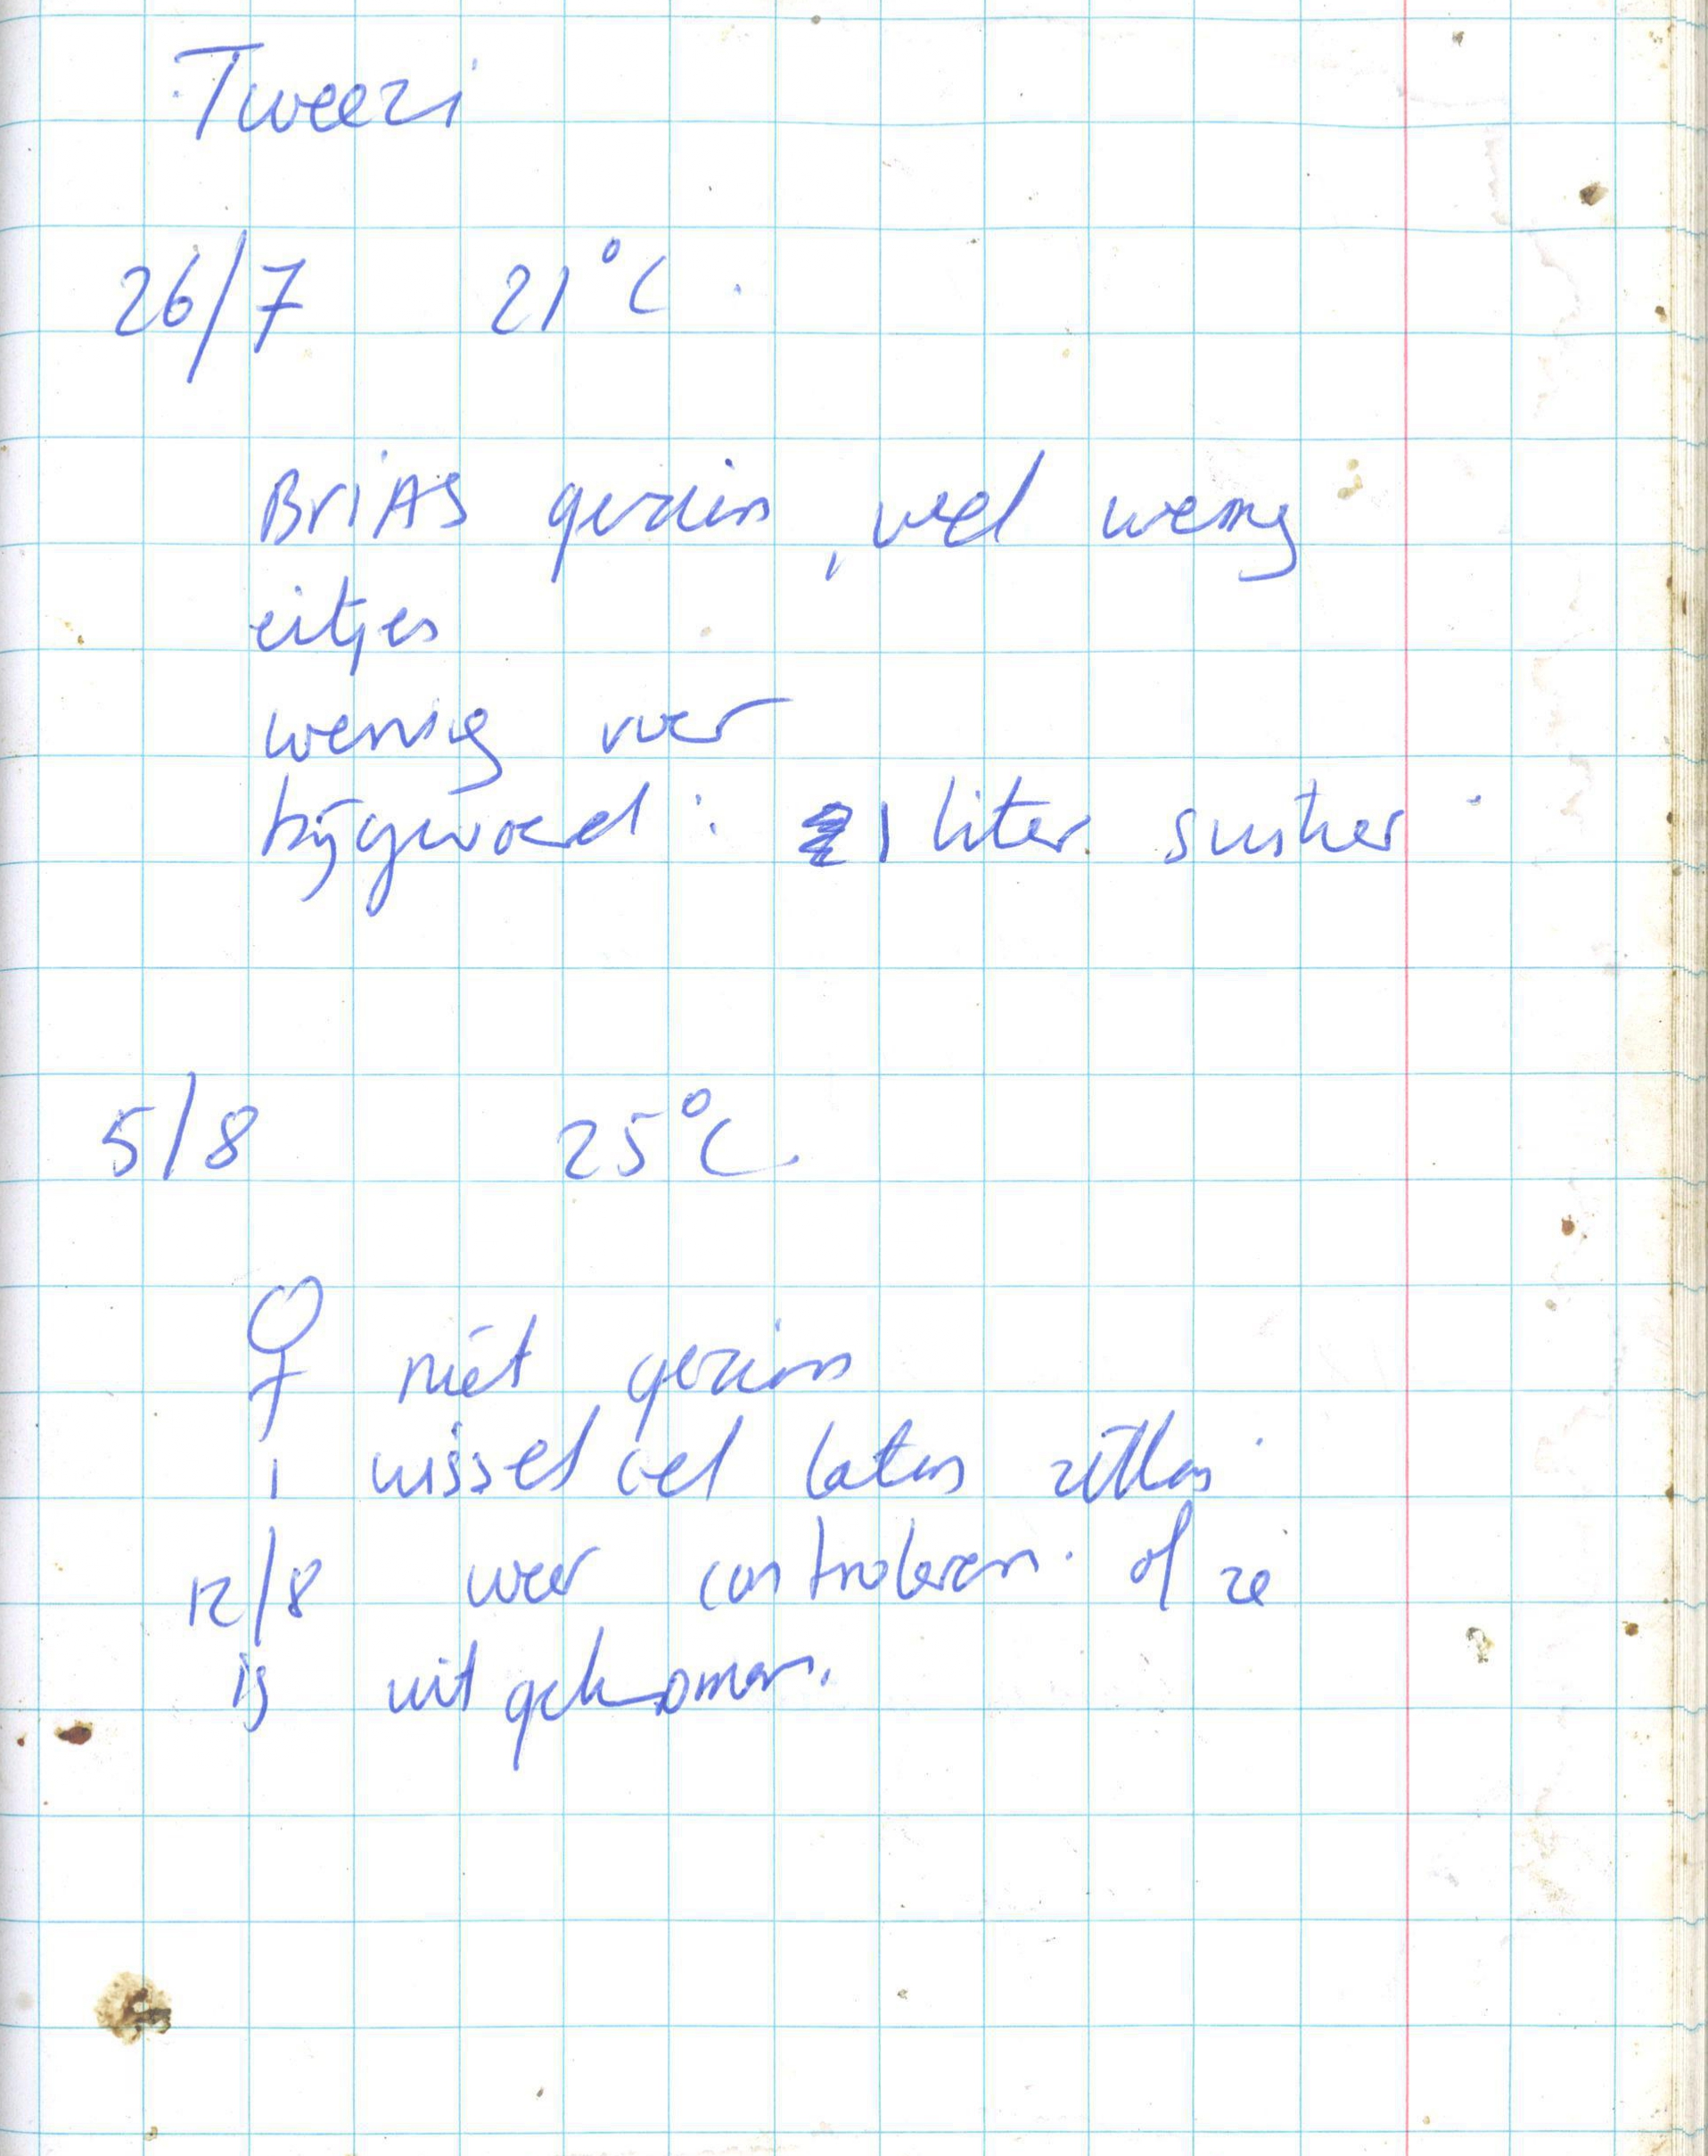 Tweezi
26/7 21°C.
BriAS gezien, veel weinig
eitjes
weinig voer
bijgevoerd: 1 liter suiker
5/8 25°C.
♀ niet gezien
1 wisselcel laten zitten
12/8 weer controleren. of ze
is uitgekomen.